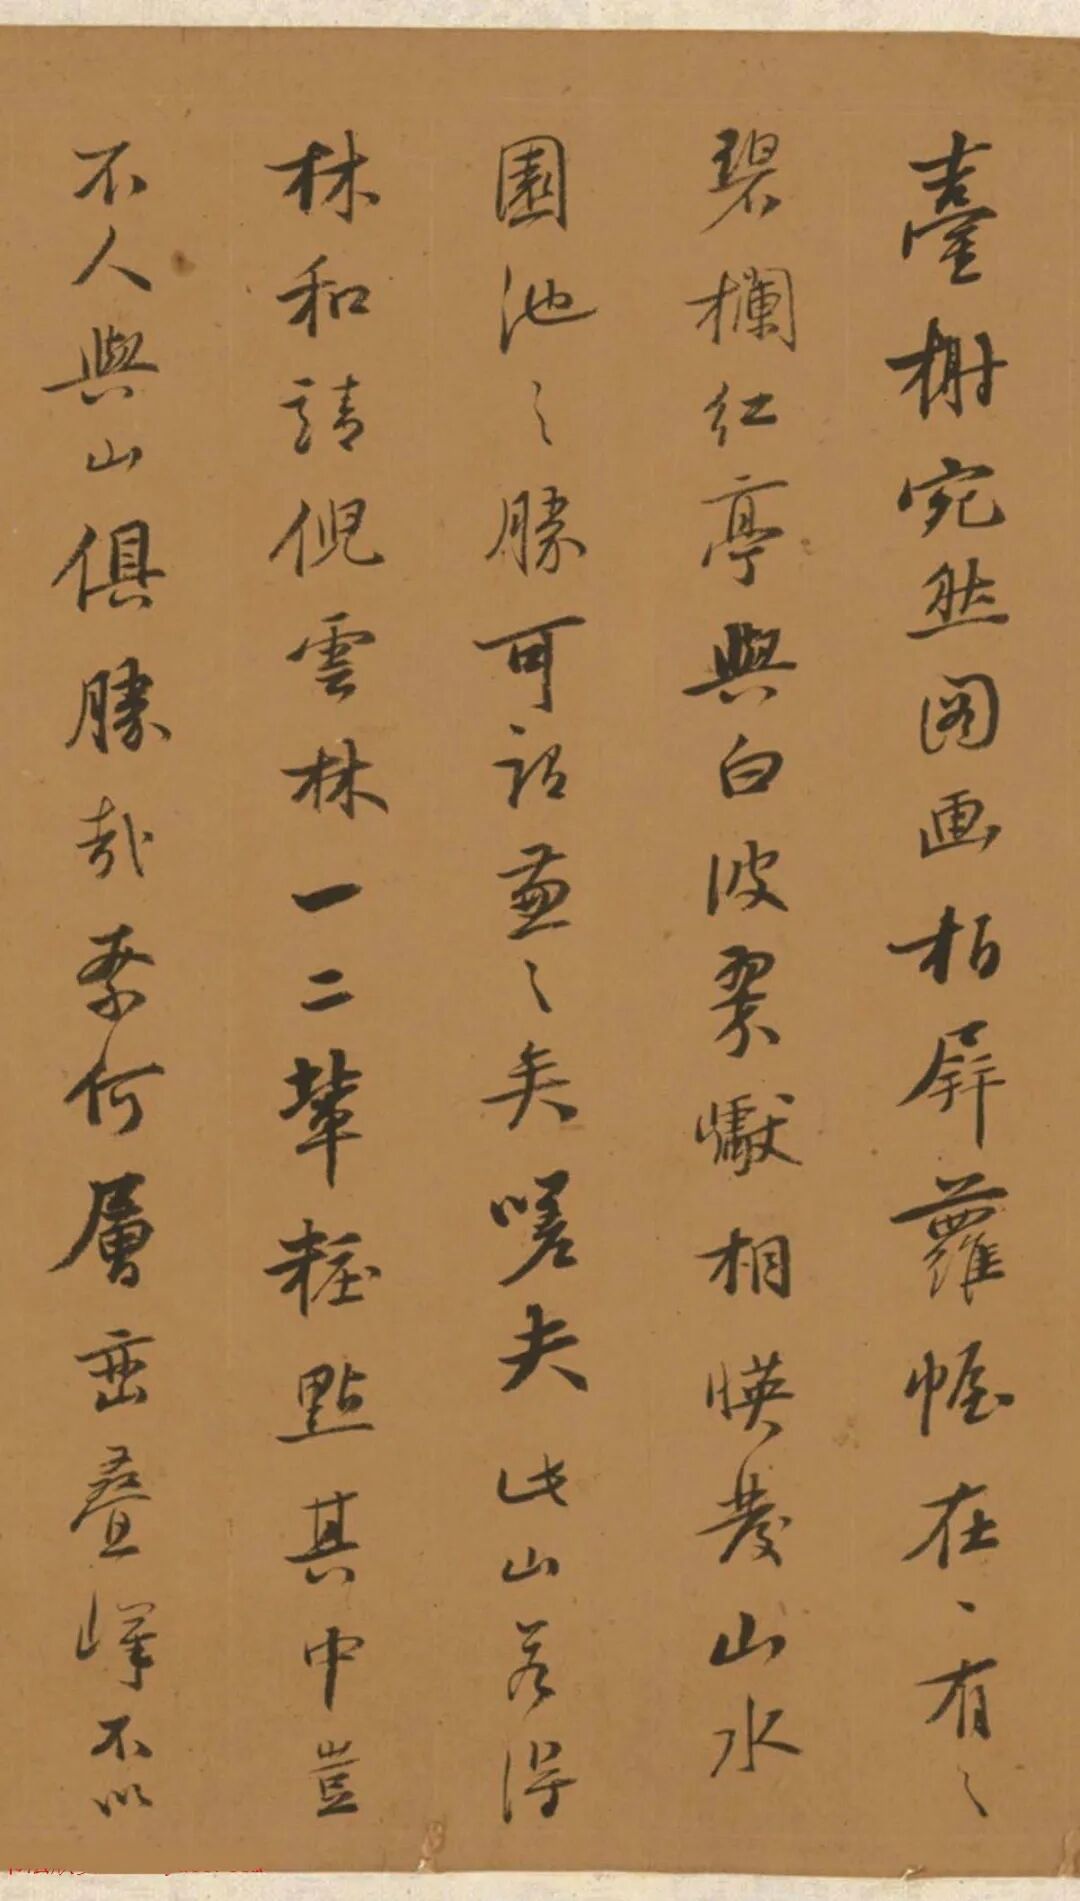 臺榭宛然圖画柏屏蘿幄在〻有之
碧欄紅亭與白波翠巘相暎發山水
園池之勝可謂兼之矣嗟夫此山若得
林和靖倪雲林一二輩粧點其中豈
不人與山俱勝哉奈何層巒疊嶂不以